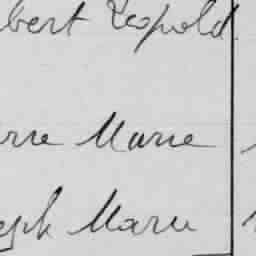 bert Léopold
rre Marie
eph Marie